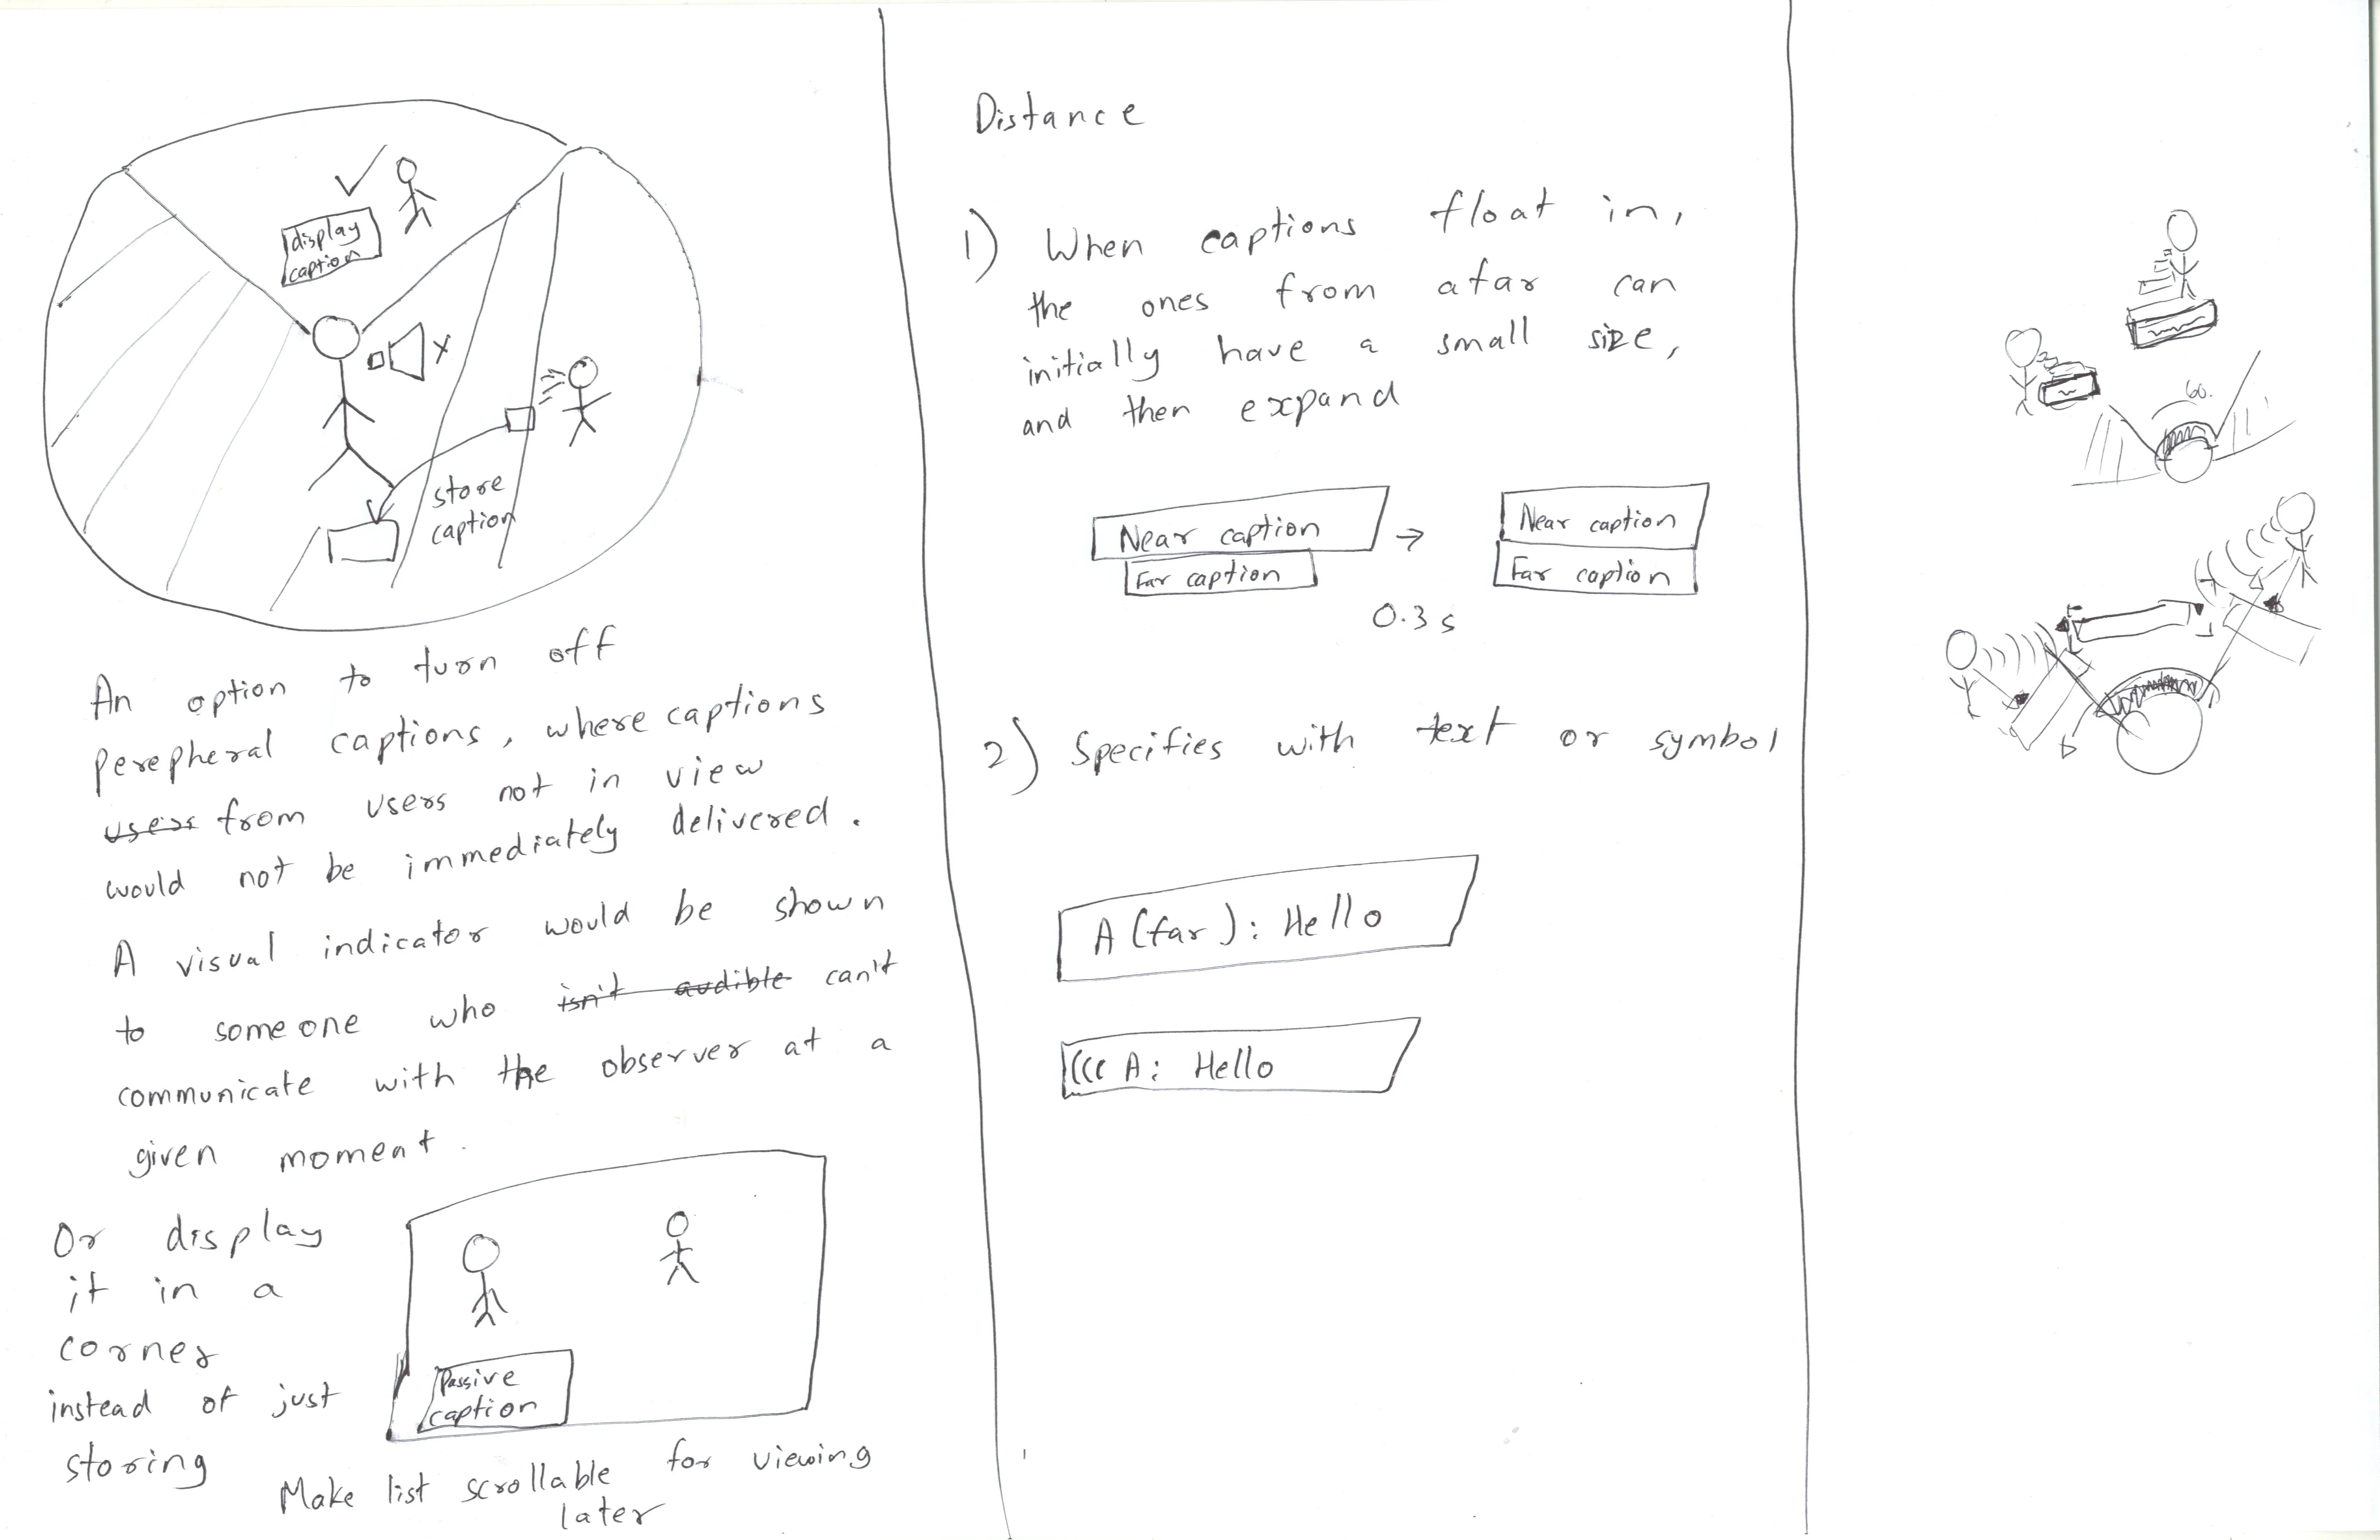 display
caption
store
caption
An option to turn off
Perepheral captions, where captions
users from users not in view
would not be immediately delivered.
A visual indicator would be shown
to someone who isn't audible can't
communicate with the observer at a
given moment.
Or display
it in a
corner
instead of just
storing
Passive
caption
Make list scrollable for viewing
later
Distance
1) When captions float in,
the ones from afar can
initially have a small size,
and then expand
Near caption
Far caption
→
Near caption
Far caption
0.3 s
2) Specifies with text or symbol
A (far): Hello
((( A: Hello
60.